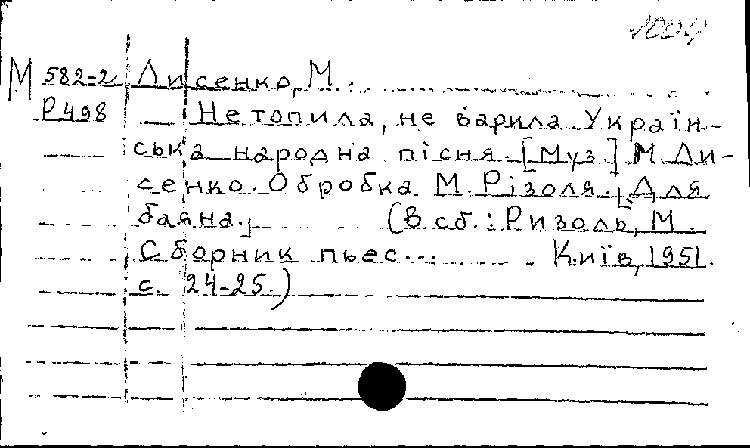 1004
М 582-2 Лисенко, М.
Р498 Не топила, не варила. Україн-
ська народна пісня. [Муз.] М. Ли-
сенко. Обробка М. Різоля. [Для
баяна.] (В сб.: Ризоль, М.
Сборник пьес... Київ, 1951.
с. 24-25.)